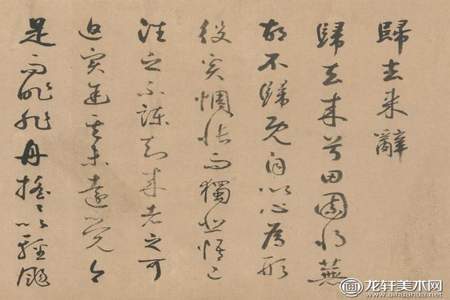 歸去來辭
歸去來兮田園將蕪
胡不歸既自以心為形
役奚惆悵而獨悲悟已
往之不諫知來者之可
追實迷途其未遠覺今
是而昨非舟搖々以輕颺
龙轩美术网